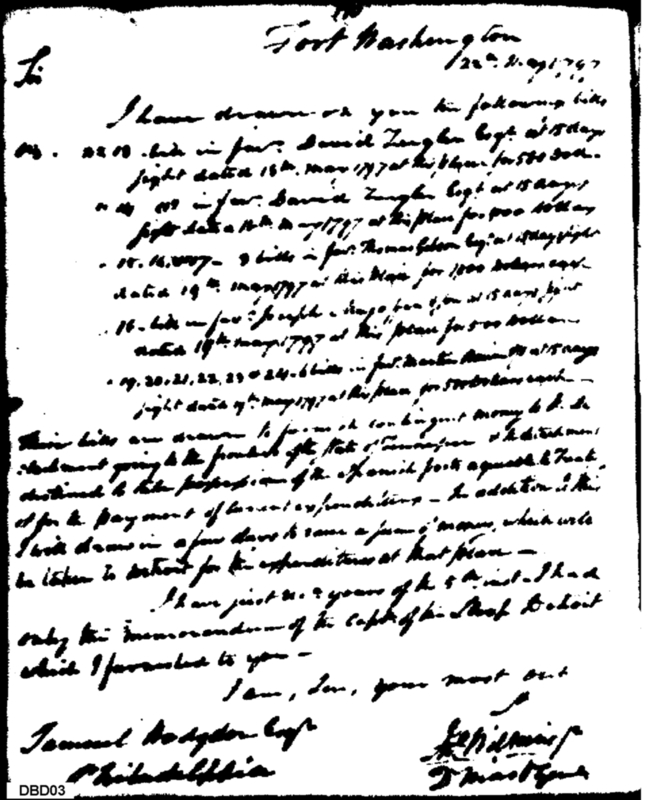 Fort Washington
22d. May 1797
Sir
I have drawn on you the following bills
No. 12 13 - bills in favr. David Zeigler Esqr. at 15 days
sight dated 18th. May 1797 at this place for 500 Doll.
" 14 in favr. David Zeigler Esqr. at 15 days
sight dated 18th May 1797 at this place for 1000 Dollars
" 15. 16. 17 - 3 bills in favr. Thomas Gibson Esqr. at 15 days sight
dated 19th. May 1797 at this place for 1,000 Dollars each
- bill in favr. Joseph at 15 days sight
dated 19th. May 1797 at this place for 500 Dollars
" 19. 20. 21. 22. 23 & 24. 6 bills in favr. Martin at 15 days
sight dated 19th. May 1797 at this place for 500 Dollars each -
These bills are drawn to furnish contingent money to the de
tachment going to the frontier of the State of Tennessee & the detachment
destined to take possession of the Spanish posts agreeable to Treaty
& for the payment of current expenditures - In addition to this
I will draw in a few days to raise a sum of money, which will
be taken to Detroit for the expenditures at that place -
I have just yours of the 5th inst. I had
only the memorandum of the Captn. of the Sloop Detroit
which I forwarded to you -
I am, Sir, your most obt
Sr
Samuel Hodgdon Esqr
Philadelphia
Jn Wilkins Jr
Qr Mastr Genl
DBD03